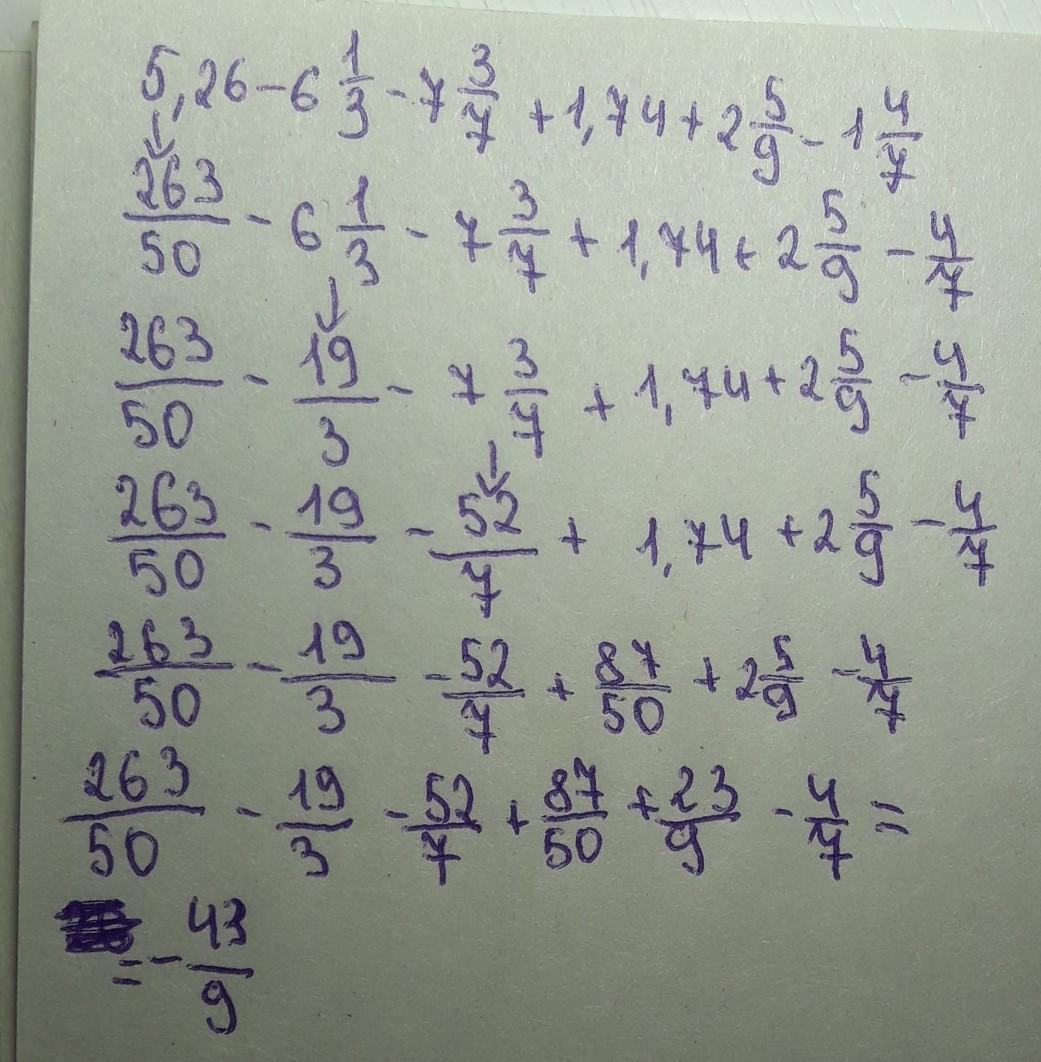 5,26 - 6 1/3 - 7 3/7 + 1,74 + 2 5/9 - 1 4/7
263/50 - 6 1/3 - 7 3/7 + 1,74 + 2 5/9 - 4/7
263/50 - 19/3 - 7 3/7 + 1,74 + 2 5/9 - 4/7
263/50 - 19/3 - 52/7 + 1,74 + 2 5/9 - 4/7
263/50 - 19/3 - 52/7 + 87/50 + 2 5/9 - 4/7
263/50 - 19/3 - 52/7 + 87/50 + 23/9 - 4/7 =
= - 43/9